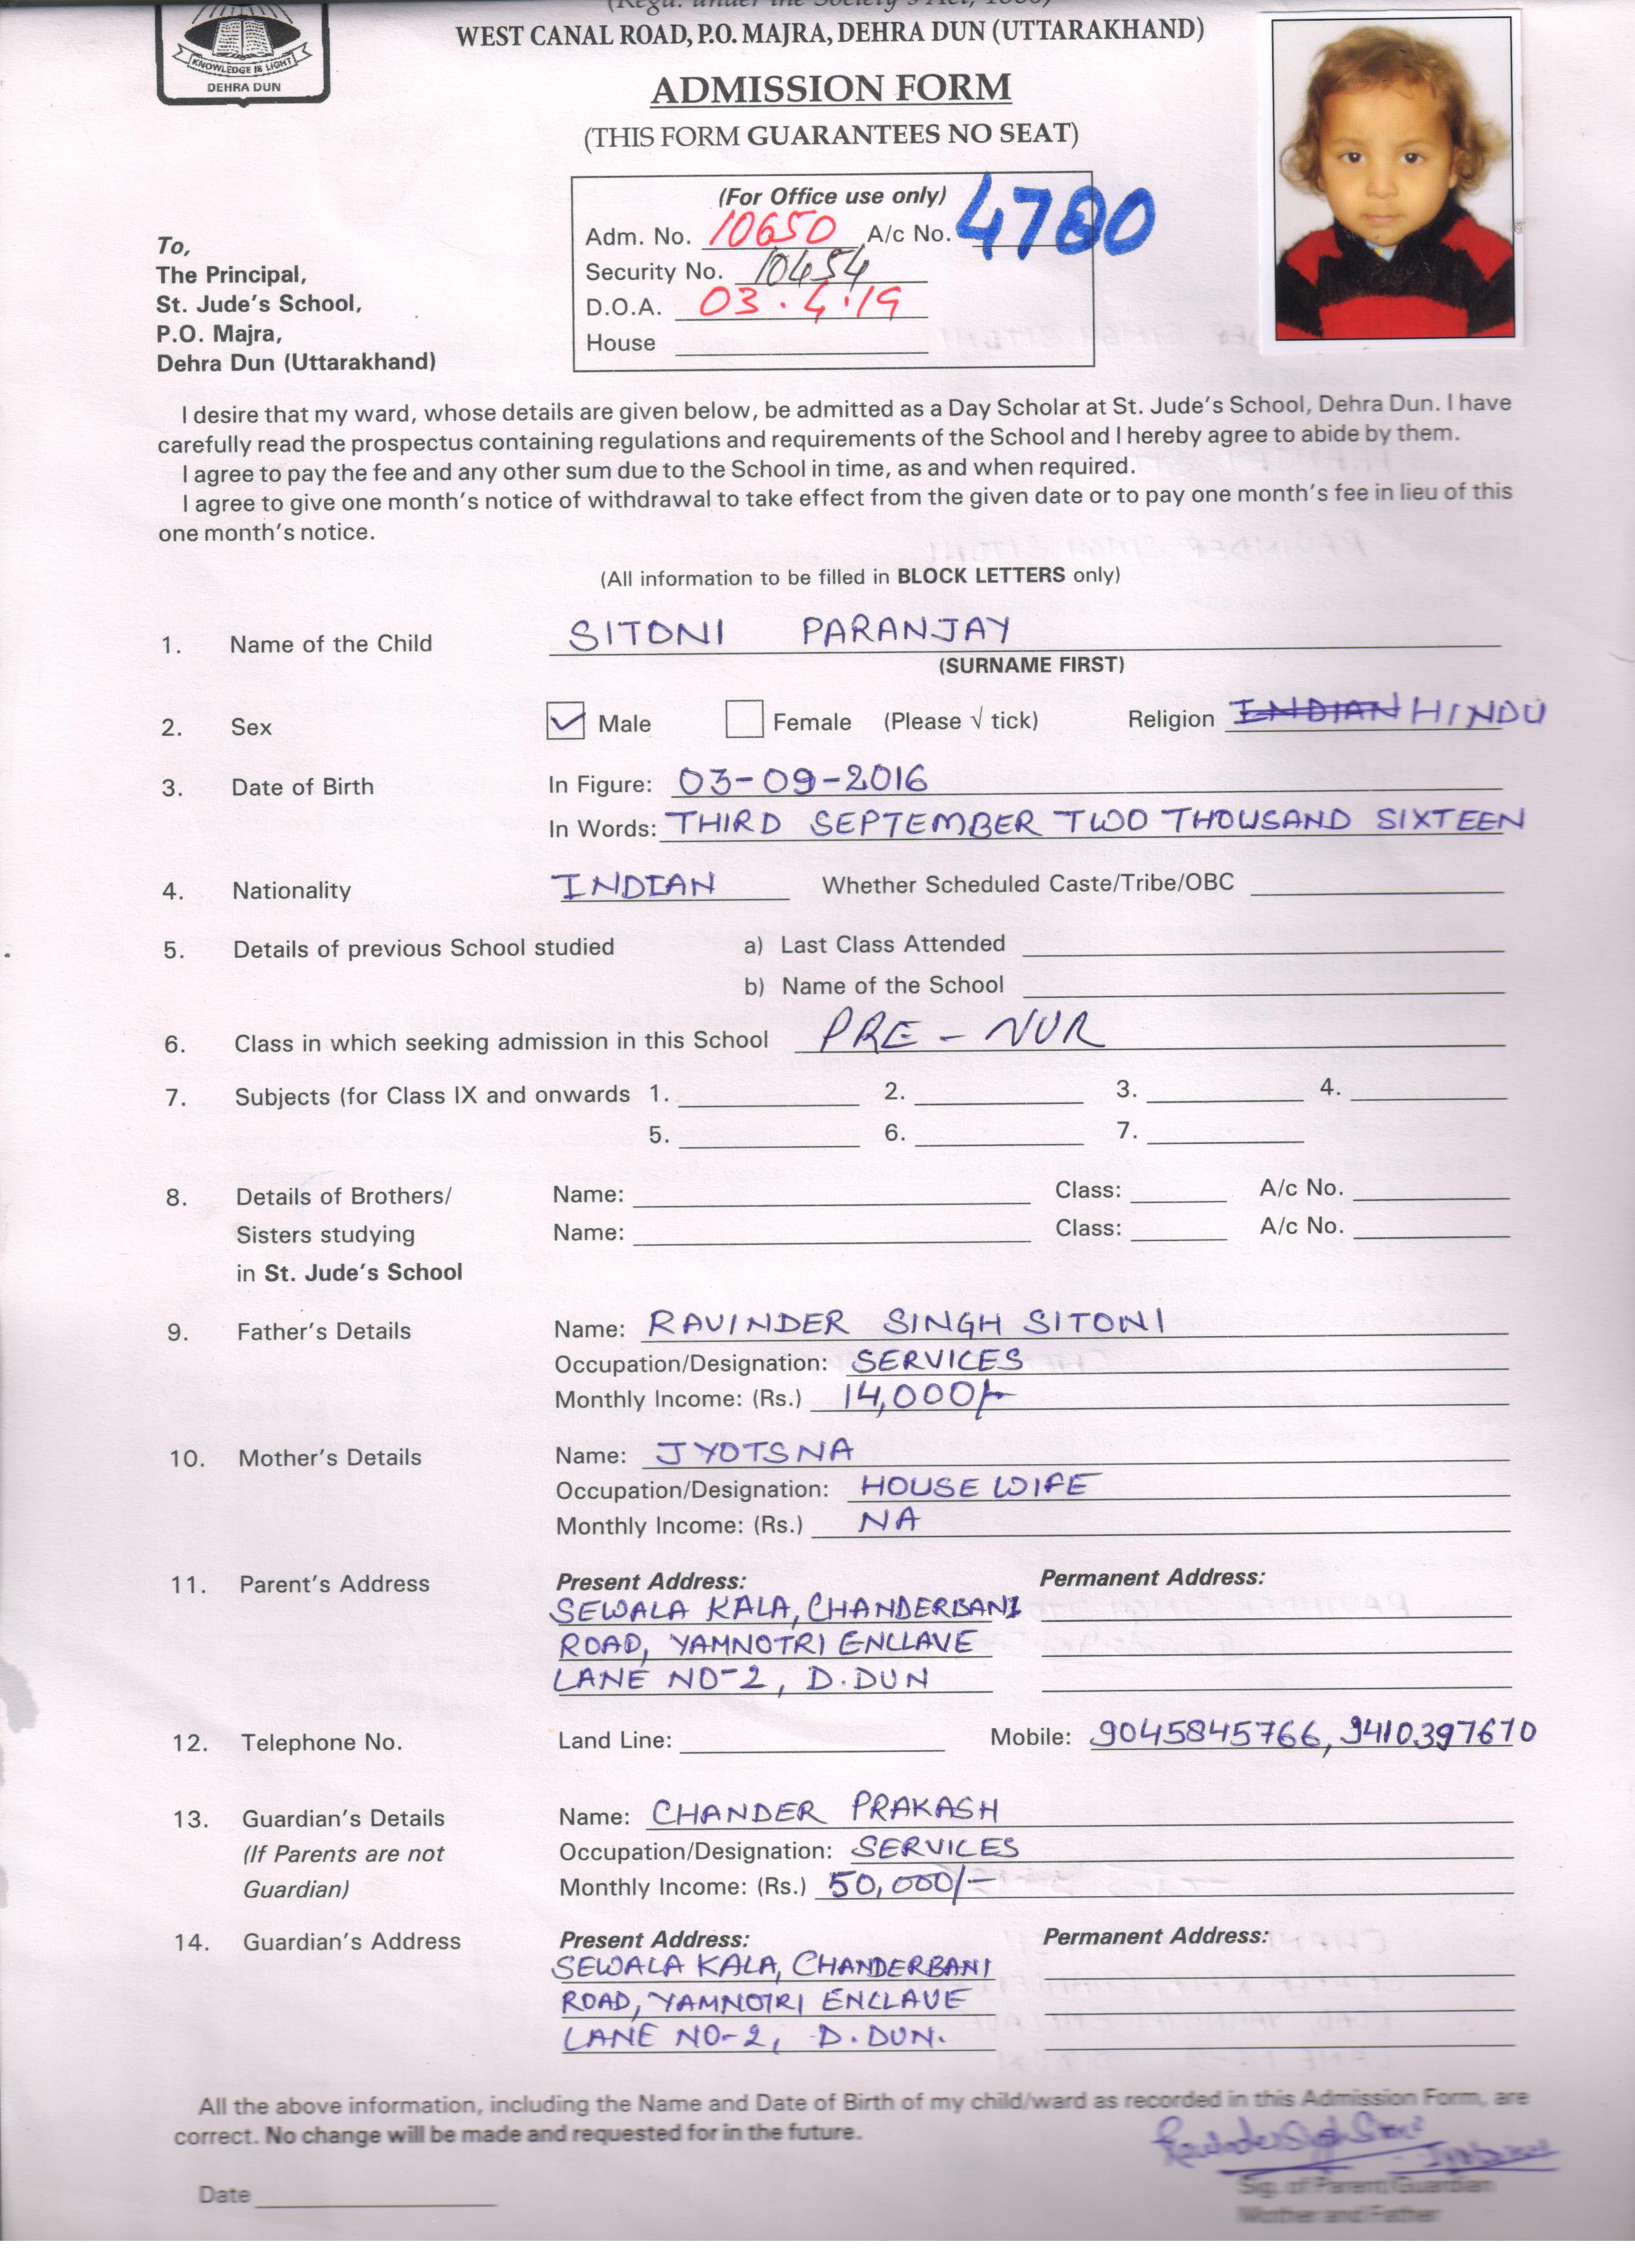 (Regd. under the Society's Act, 1860)
WEST CANAL ROAD, P.O. MAJRA, DEHRA DUN (UTTARAKHAND)
KNOWLEDGE IS LIGHT
DEHRA DUN
ADMISSION FORM
(THIS FORM GUARANTEES NO SEAT)
(For Office use only)
Adm. No. 10650 A/c No. 4780
Security No. 10454
D.O.A. 03.4.19
House
To,
The Principal,
St. Jude's School,
P.O. Majra,
Dehra Dun (Uttarakhand)
I desire that my ward, whose details are given below, be admitted as a Day Scholar at St. Jude's School, Dehra Dun. I have
carefully read the prospectus containing regulations and requirements of the School and I hereby agree to abide by them.
I agree to pay the fee and any other sum due to the School in time, as and when required.
I agree to give one month's notice of withdrawal to take effect from the given date or to pay one month's fee in lieu of this
one month's notice.
(All information to be filled in BLOCK LETTERS only)
1. Name of the Child SITONI PARANJAY
(SURNAME FIRST)
2. Sex Male Female (Please √ tick) Religion INDIAN HINDU
3. Date of Birth In Figure: 03-09-2016
In Words: THIRD SEPTEMBER TWO THOUSAND SIXTEEN
4. Nationality INDIAN Whether Scheduled Caste/Tribe/OBC
5. Details of previous School studied a) Last Class Attended
b) Name of the School
6. Class in which seeking admission in this School PRE - NUR
7. Subjects (for Class IX and onwards 1. 2. 3. 4.
5. 6. 7.
8. Details of Brothers/ Name: Class: A/c No.
Sisters studying Name: Class: A/c No.
in St. Jude's School
9. Father's Details Name: RAVINDER SINGH SITONI
Occupation/Designation: SERVICES
Monthly Income: (Rs.) 14,000/-
10. Mother's Details Name: JYOTSNA
Occupation/Designation: HOUSE WIFE
Monthly Income: (Rs.) NA
11. Parent's Address Present Address: Permanent Address:
SEWALA KALA, CHANDERBANI
ROAD, YAMNOTRI ENCLAVE
LANE NO-2, D.DUN
12. Telephone No. Land Line: Mobile: 9045845766, 9410397670
13. Guardian's Details Name: CHANDER PRAKASH
(If Parents are not Occupation/Designation: SERVICES
Guardian) Monthly Income: (Rs.) 50,000/-
14. Guardian's Address Present Address: Permanent Address:
SEWALA KALA, CHANDERBANI
ROAD, YAMNOTRI ENCLAVE
LANE NO-2, D.DUN.
All the above information, including the Name and Date of Birth of my child/ward as recorded in this Admission Form, are
correct. No change will be made and requested for in the future.
Date
Sig. of Parent/Guardian
Mother and Father